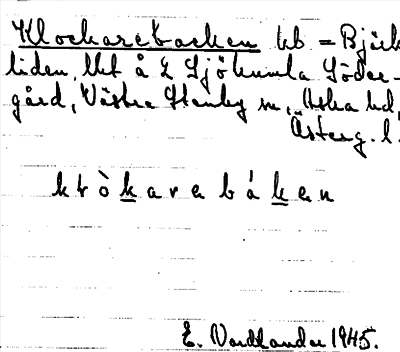 Klockarebacken kb = Björk-
liden, lht å 2 Sjökumla Söder-
gård, Västra Stenby sn, Aska hd,
Österg. l.
k l ò k a r e b á k e n
E. Nordlander 1945.